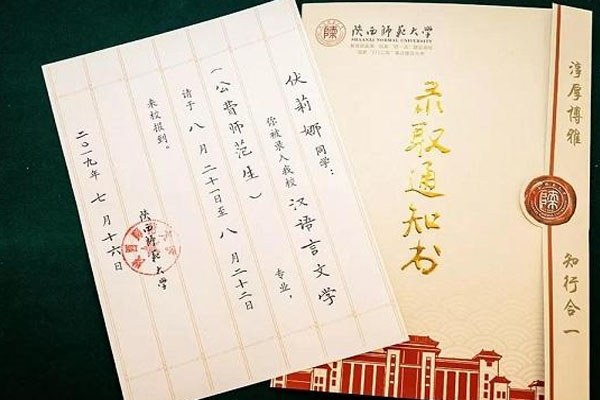 伏莉娜同学：
你被录入我校汉语言文学专业，
（公费师范生）
请于八月二十一日至八月二十二日
来校报到。
陕西师范大学
二〇一九年七月十六日
陕西师范大学
SHAANXI NORMAL UNIVERSITY
录取通知书
淳厚博雅
知行合一
陕